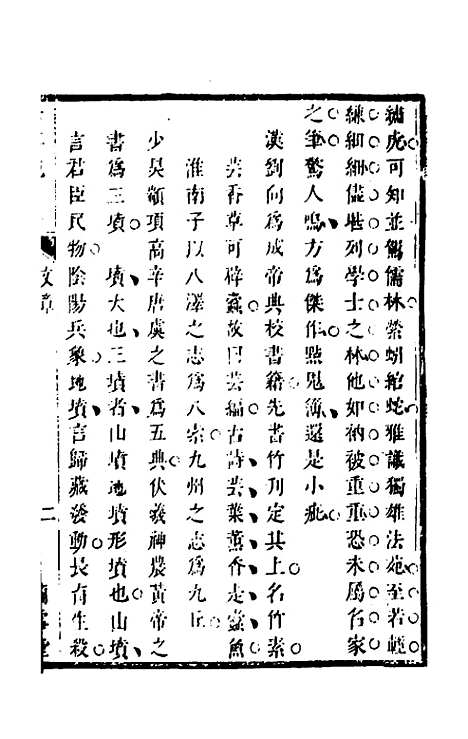 繡虎可知並駕儒林縈蚓綰蛇雅譏獨雄法苑至若輕
練細細儘堪列學士之林他如衲被重重恐未屬名家
之筆驚人鳴方為傑作點鬼簿還是小疵
漢劉向為成帝典校書籍先書竹刊定其上名竹素
芸香草可辟蠹故曰芸編古詩芸葉薰香走蠹魚
淮南子以八澤之志為八索九州之志為九丘
少昊顓頊高辛唐虞之書為五典伏羲神農黃帝之
書為三墳 墳大也三墳者山墳地墳形墳也山墳
言君臣民物陰陽兵象地墳言歸藏發動長育生殺
文章
二